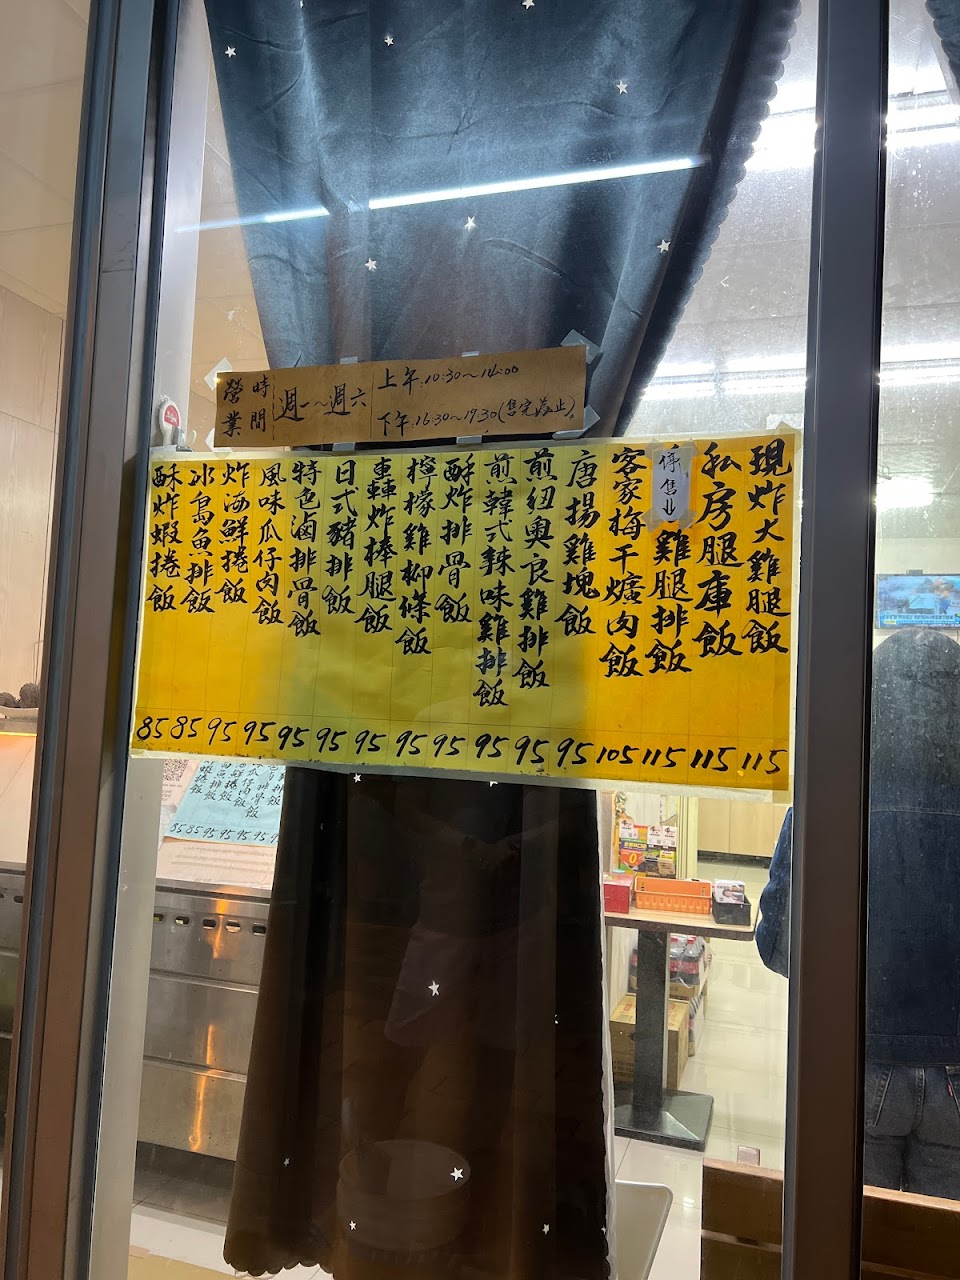 營業時間
週一～週六
上午:10:30～14:00
下午:16:30～19:30(售完為止)。
現炸大雞腿飯 115
私房腿庫飯 115
停售↓
雞腿排飯 115
客家梅干爌肉飯 105
唐揚雞塊飯 95
煎紐奧良雞排飯 95
煎韓式辣味雞排飯 95
酥炸排骨飯 95
檸檬雞柳條飯 95
轟炸棒腿飯 95
日式豬排飯 95
特色滷排骨飯 95
風味瓜仔肉飯 95
炸海鮮捲飯 95
冰島魚排飯 85
酥炸蝦捲飯 85
85 85 95 95 95 95